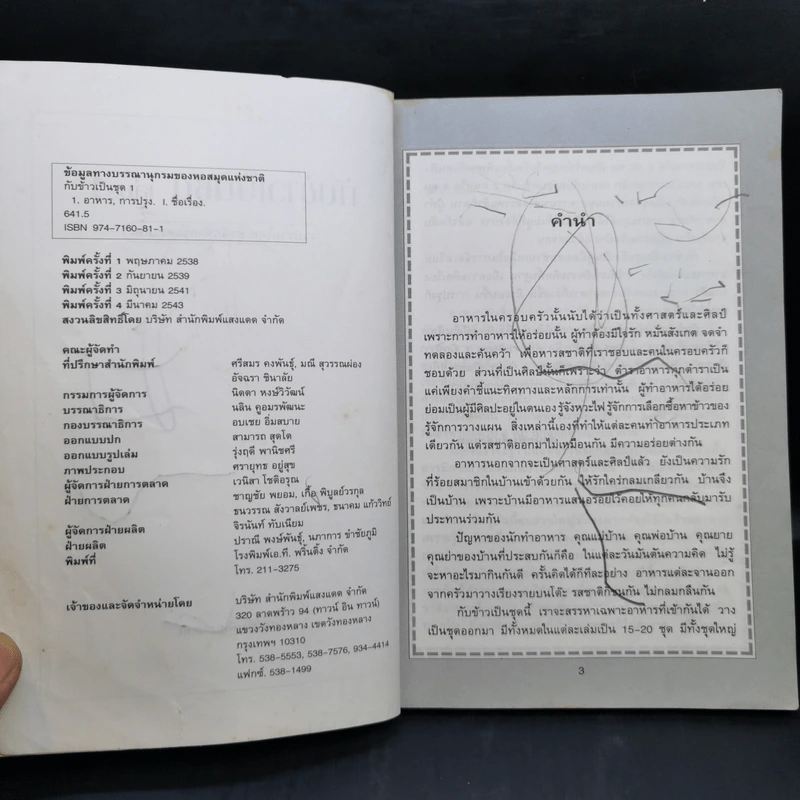 ข้อมูลทางบรรณานุกรมของหอสมุดแห่งชาติ
กับข้าวเป็นชุด 1
1. อาหาร, การปรุง. I. ชื่อเรื่อง.
641.5
ISBN 974-7160-81-1
พิมพ์ครั้งที่ 1 พฤษภาคม 2538
พิมพ์ครั้งที่ 2 กันยายน 2539
พิมพ์ครั้งที่ 3 มิถุนายน 2541
พิมพ์ครั้งที่ 4 มีนาคม 2543
สงวนลิขสิทธิ์โดย บริษัท สำนักพิมพ์แสงแดด จำกัด
คณะผู้จัดทำ
ที่ปรึกษาสำนักพิมพ์ ศรีสมร คงพันธุ์, มณี สุวรรณผ่อง
อัจฉรา ชินาลัย
กรรมการผู้จัดการ นิดดา หงษ์วิวัฒน์
บรรณาธิการ นลิน คูอมรพัฒนะ
กองบรรณาธิการ อบเชย อิ่มสบาย
ออกแบบปก สามารถ สุดโต
ออกแบบรูปเล่ม รุ่งฤดี พานิชศรี
ภาพประกอบ ศรายุทธ อยู่สุข
ผู้จัดการฝ่ายการตลาด เวนิสา โชติอรุณ
ฝ่ายการตลาด ชาญชัย พยอม, เกื้อ พิบูลย์วรกุล
ธนวรรณ สังวาลย์เพชร, ธนาคม แก้ววิทย์
ผู้จัดการฝ่ายผลิต จิรนันท์ ทับเนียม
ฝ่ายผลิต ปราณี พงษ์พันธุ์, นภาการ ขำชัยภูมิ
พิมพ์ที่ โรงพิมพ์เอ.ที. พริ้นติ้ง จำกัด
โทร. 211-3275
เจ้าของและจัดจำหน่ายโดย บริษัท สำนักพิมพ์แสงแดด จำกัด
320 ลาดพร้าว 94 (ทาวน์ อิน ทาวน์)
แขวงวังทองหลาง เขตวังทองหลาง
กรุงเทพฯ 10310
โทร. 538-5553, 538-7576, 934-4414
แฟกซ์. 538-1499
คำนำ
อาหารในครอบครัวนั้นนับได้ว่าเป็นทั้งศาสตร์และศิลป์
เพราะการทำอาหารให้อร่อยนั้น ผู้ทำต้องมีใจรัก หมั่นสังเกต จดจำ
ทดลองและค้นคว้า เพื่อหารสชาติที่เราชอบและคนในครอบครัวก็
ชอบด้วย ส่วนที่เป็นศิลป์นั้นก็เพราะว่า ตำราอาหารทุกตำราเป็น
แค่เพียงคำชี้แนะทิศทางและหลักการเท่านั้น ผู้ทำอาหารได้อร่อย
ย่อมเป็นผู้มีศิลปะอยู่ในตนเอง รู้จังหวะไฟ รู้จักการเลือกซื้อหาข้าวของ
รู้จักการวางแผน สิ่งเหล่านี้เองที่ทำให้แต่ละคนทำอาหารประเภท
เดียวกัน แต่รสชาติออกมาไม่เหมือนกัน มีความอร่อยต่างกัน
อาหารนอกจากจะเป็นศาสตร์และศิลป์แล้ว ยังเป็นความรัก
ที่ร้อยสมาชิกในบ้านเข้าด้วยกัน ให้รักใคร่กลมเกลียวกัน บ้านจึง
เป็นบ้าน เพราะบ้านมีอาหารแสนอร่อยไว้คอยให้ทุกคนกลับมารับ
ประทานร่วมกัน
ปัญหาของนักทำอาหาร คุณแม่บ้าน คุณพ่อบ้าน คุณยาย
คุณย่าของบ้านที่ประสบกันก็คือ ในแต่ละวันมันตันความคิด ไม่รู้
จะหาอะไรมากินกันดี ครั้นคิดได้ก็ทีละอย่าง อาหารแต่ละจานออก
จากครัวมาวางเรียงรายบนโต๊ะ รสชาติก็ชนกัน ไม่กลมกลืนกัน
กับข้าวเป็นชุดนี้ เราจะสรรหาเฉพาะอาหารที่เข้ากันได้ วาง
เป็นชุดออกมา มีทั้งหมดในแต่ละเล่มเป็น 15-20 ชุด มีทั้งชุดใหญ่
3